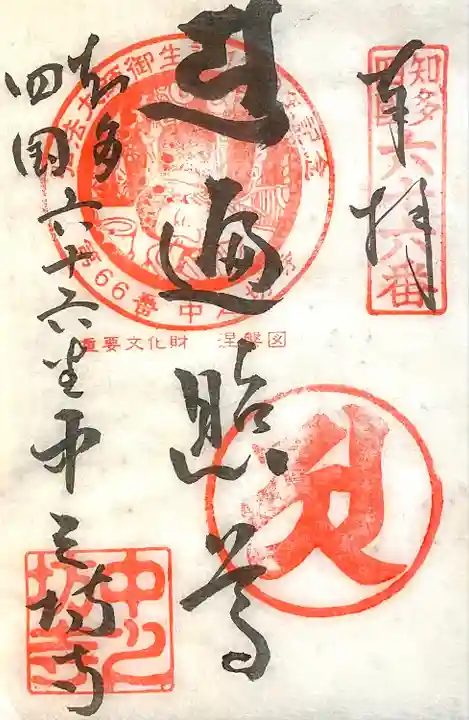 奉拝
知多
四国
六十六番
遍照尊
重要文化財 涅槃図
知多
四国六十六番中之坊寺
中之
坊寺